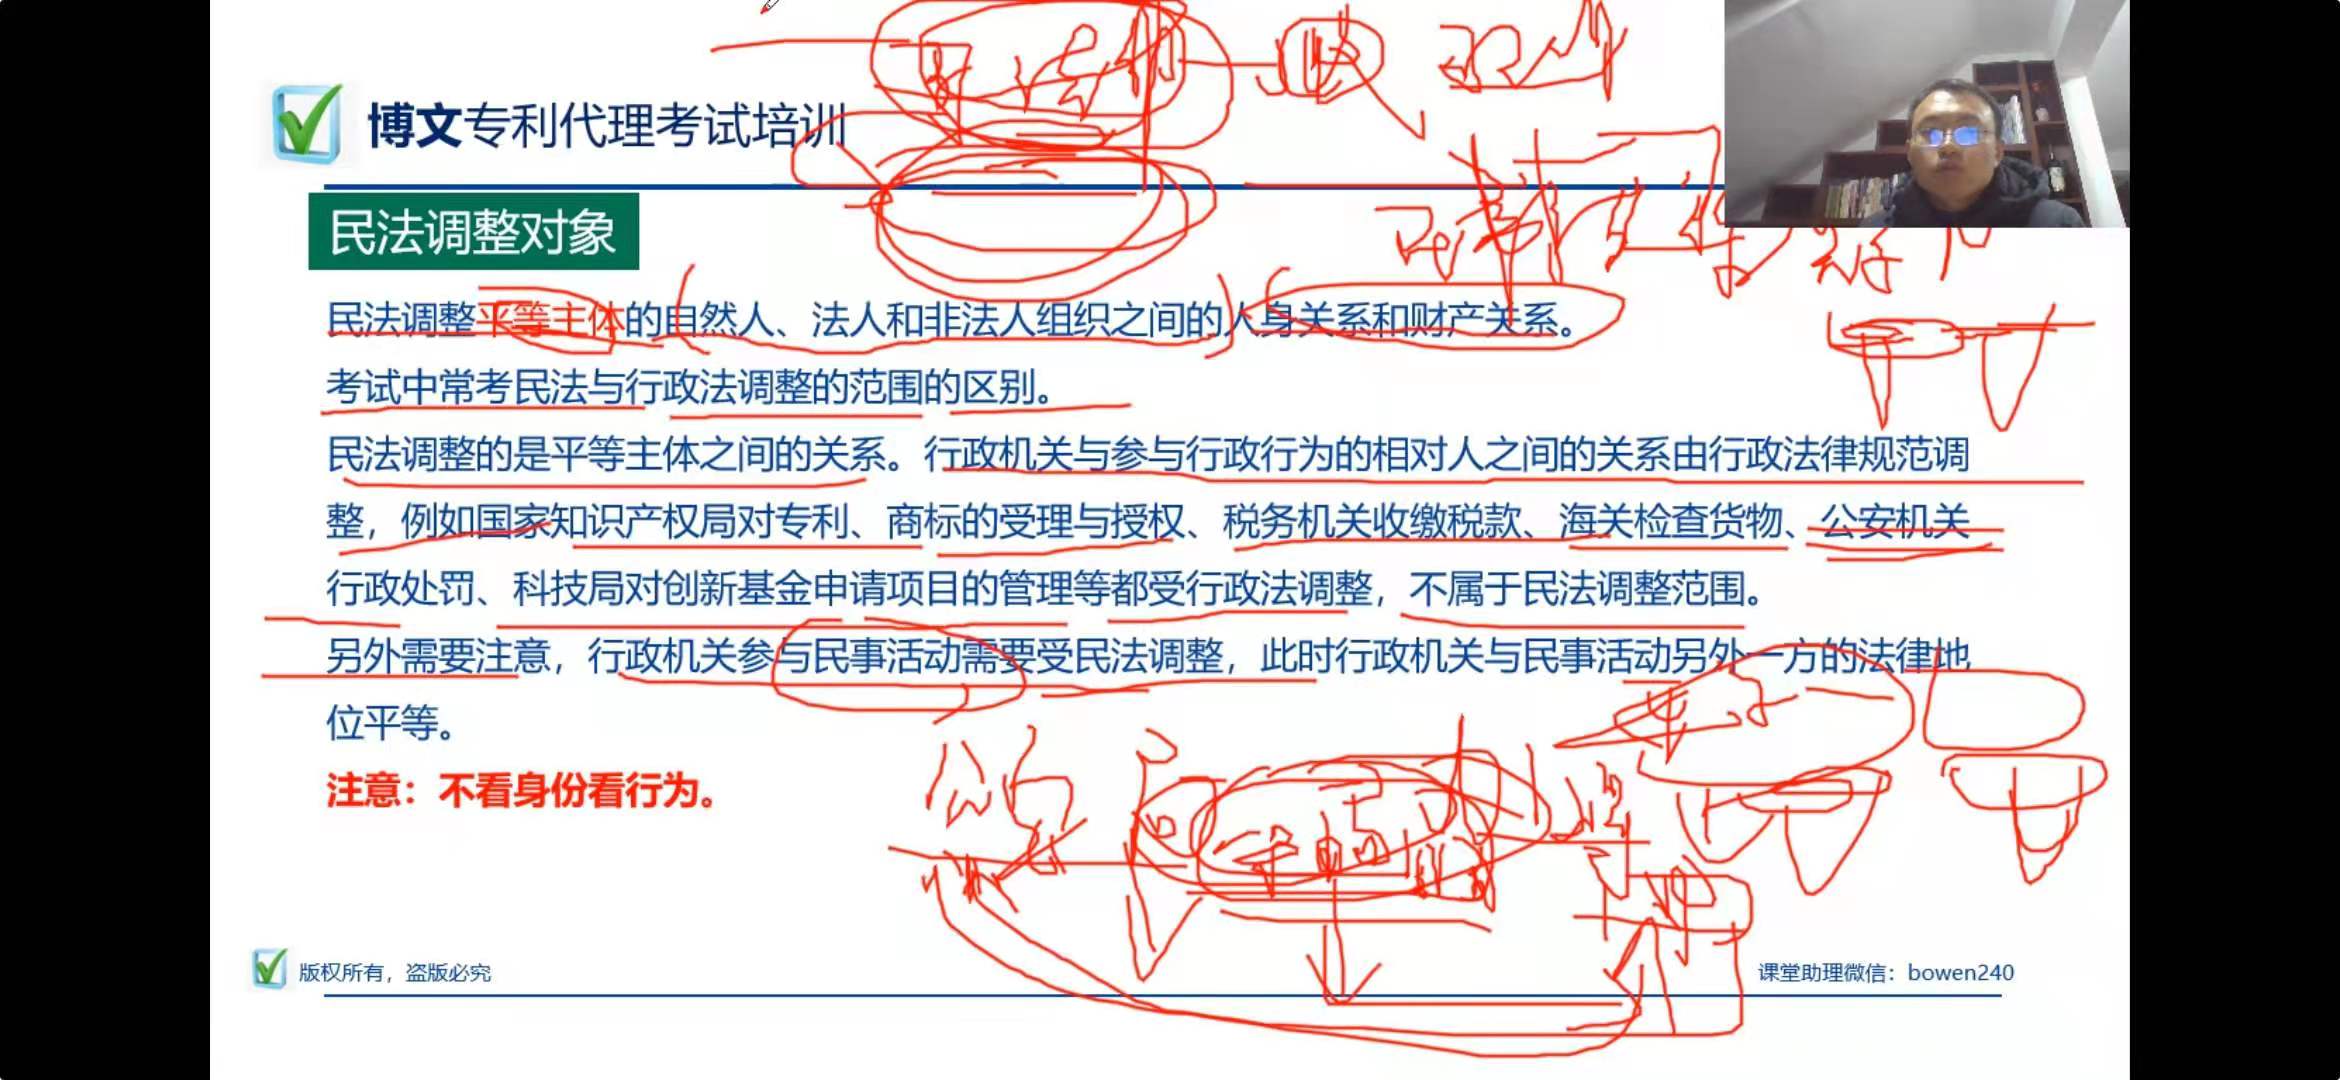 博文专利代理考试培训
民法调整对象
民法调整平等主体的自然人、法人和非法人组织之间的人身关系和财产关系。
考试中常考民法与行政法调整的范围的区别。
民法调整的是平等主体之间的关系。行政机关与参与行政行为的相对人之间的关系由行政法律规范调
整，例如国家知识产权局对专利、商标的受理与授权、税务机关收缴税款、海关检查货物、公安机关
行政处罚、科技局对创新基金申请项目的管理等都受行政法调整，不属于民法调整范围。
另外需要注意，行政机关参与民事活动需要受民法调整，此时行政机关与民事活动另外一方的法律地
位平等。
注意：不看身份看行为。
版权所有，盗版必究
课堂助理微信：bowen240